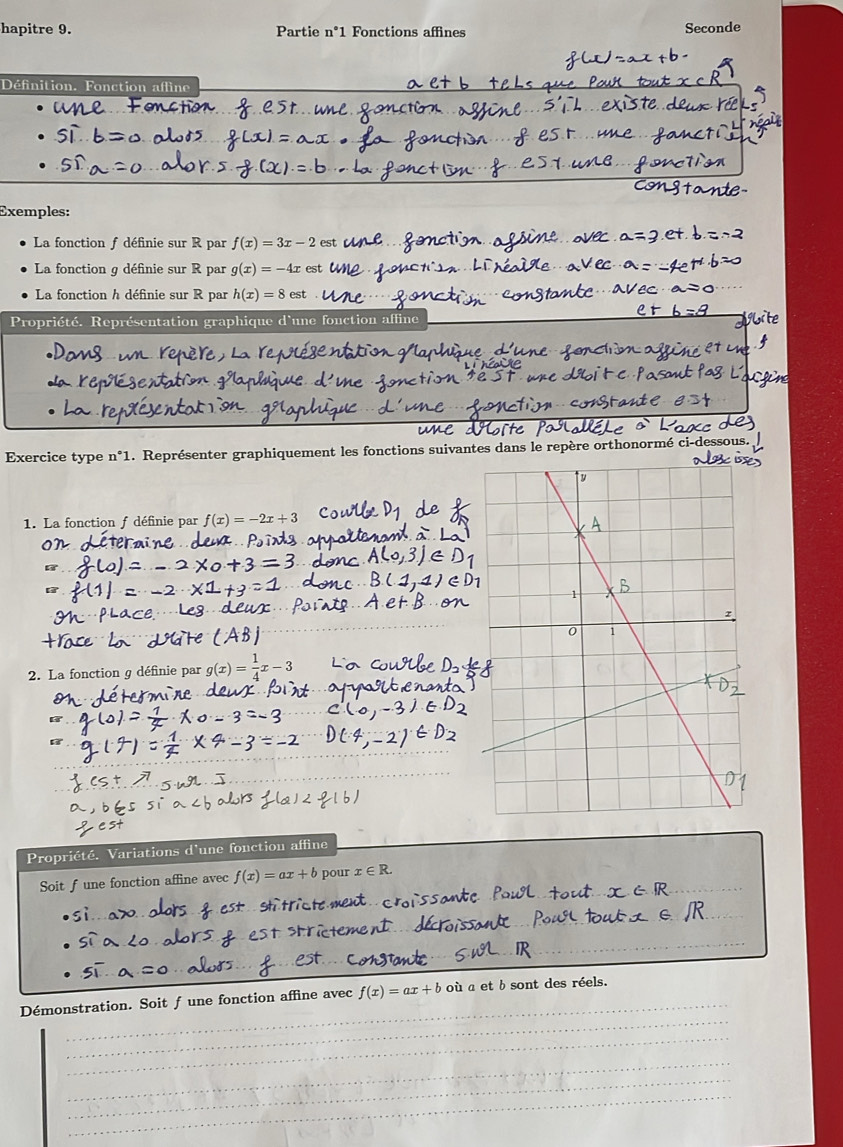 hapitre 9.
Partie n°1 Fonctions affines
Seconde
f(x)=ax+b.
Définition. Fonction affine
a et b tels que Pour tout x ∈ R
• une Fonction f est une fonction affine s'il existe deux réels
• si b=0 alors f(x)=ax. La fonction f est une fonction linéaire
• si a=0 alors f(x)=b. La fonction f est une fonction
constante.
Exemples:
• La fonction f définie sur ℝ par f(x) = 3x − 2 est une fonction affine avec a=3 et b=-2
• La fonction g définie sur ℝ par g(x) = −4x est une fonction Linéaire avec a=-4 et b=0
• La fonction h définie sur ℝ par h(x) = 8 est une fonction constante avec a=0
et b=8
Propriété. Représentation graphique d'une fonction affine
droite
• Dans un repère, La représentation graphique d'une fonction affine et une
linéaire
La représentation graphique d'une fonction est une droite Pasant Pas L'origine
• La représentation graphique d'une fonction constante est
une droite Parallèle à L'axe des
abscisses
Exercice type n°1. Représenter graphiquement les fonctions suivantes dans le repère orthonormé ci-dessous.
1. La fonction f définie par f(x) = −2x + 3 courbe D1 de f
on déteraine deux Points appartenant à La
f(0) = -2×0+3=3 donc A(0,3) ∈ D1
f(1) = -2×1+3=1 donc B(1,1) ∈ D1
on PLace Les deux Points A et B on
trace La droite (AB)
2. La fonction g définie par g(x) = 1/4 x − 3 La courbe D2
on détermine deux Point appartenant a
g(0) = 1/4 × 0 - 3 = -3 C(0,-3) ∈ D2
g(4) = 1/4 × 4 - 3 = -2 D(4,-2) ∈ D2
f est ↗ sur I
a, b ∈ I si a<b alors f(a)<f(b)
f est
y
A
B
1
x
0
1
D2
D1
Propriété. Variations d'une fonction affine
Soit f une fonction affine avec f(x) = ax + b pour x ∈ ℝ.
• si a>0 alors f est strictement croissante Pour tout x ∈ ℝ
• si a<0 alors f est strictement décroissante Pour tout x ∈ ℝ
• si a=0 alors f est constante sur ℝ
Démonstration. Soit f une fonction affine avec f(x) = ax + b où a et b sont des réels.